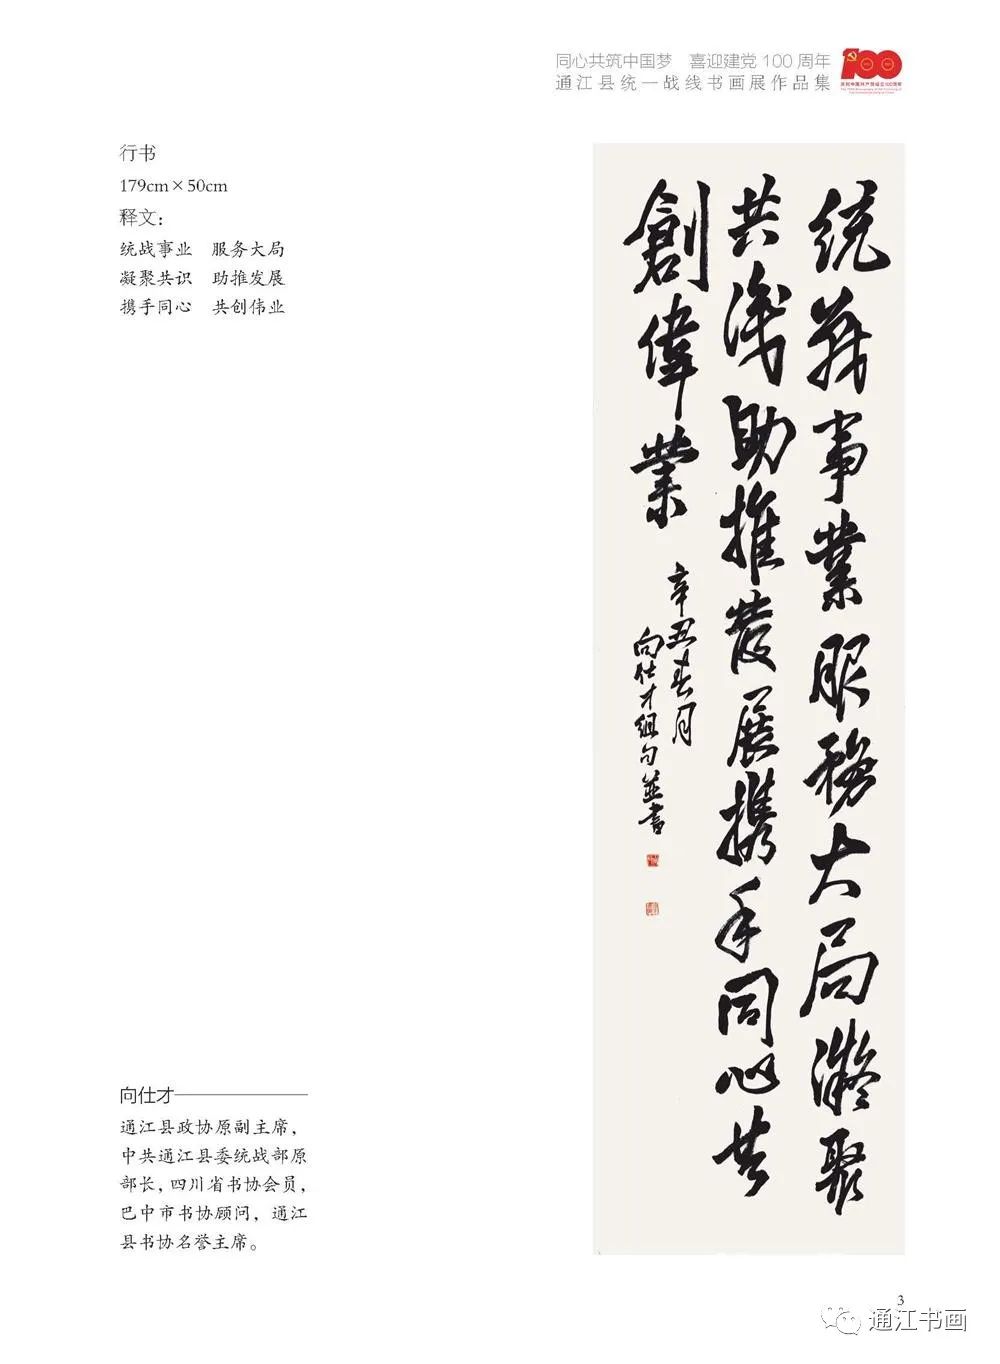 同心共筑中国梦　喜迎建党 100 周年
通江县统一战线书画展作品集
100
行书
179cm×50cm
释文：
统战事业　服务大局
凝聚共识　助推发展
携手同心　共创伟业
統战事業服務大局凝聚
共识助推發展携手同心共
創偉業
辛丑春月
向仕才组句並書
向仕才
通江县政协原副主席，
中共通江县委统战部原
部长，四川省书协会员，
巴中市书协顾问，通江
县书协名誉主席。
3
通江书画